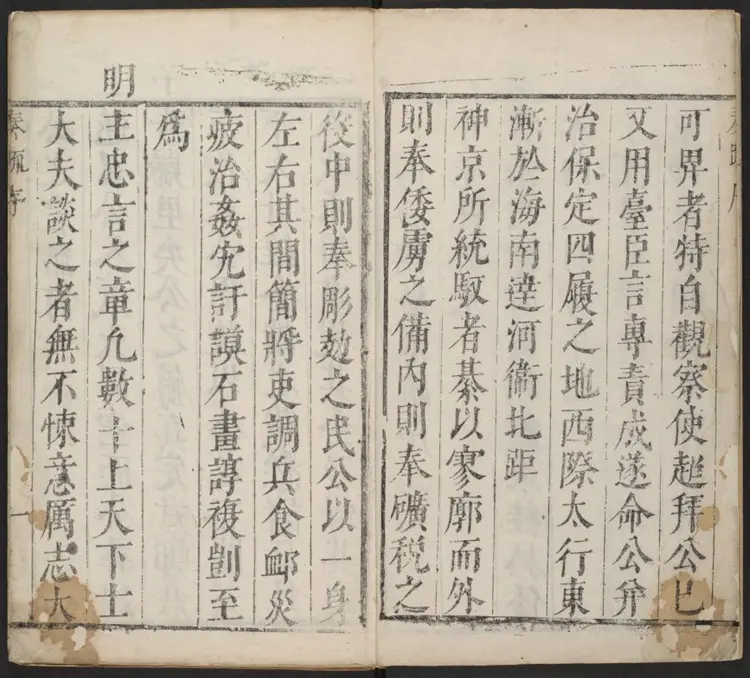 可畀者特自觀察使超拜公已
又用臺臣言專責成遂命公弁
治保定四履之地西際太行東
漸於海南逹河衞北距
神京所統馭者綦以寥廓而外
則奉倭虜之備内則奉礦稅之
役中則奉彫攰之民公以一身
左右其間簡將吏調兵食䘏災
疲治姦宄訏謨石畫諄複剴至
爲
明主忠言之章凢數十上天下士
大夫談之者無不悚意厲志大
奏疏序
一